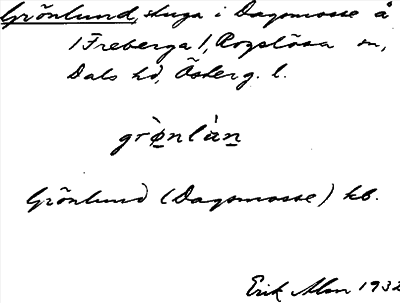 Grönlund, stuga i Dagsmosse å
/Freberga/, Rogslösa sn,
Dals hd, Österg. l.
grø̀nlàn
Grönlund (Dagsmosse) kb.
Erik Alm 1932